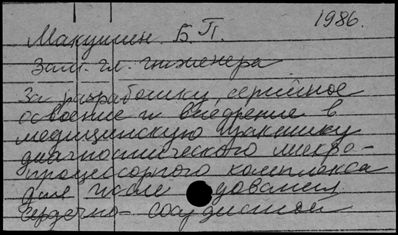 1986.
Макушин Б.П.
Зам. гл. инженера
За разработку, серийное
освоение и внедрение в
медицинскую практику
диагностического микро-
процессорного комплекса
для иссле довании
сердечно-сосудистой